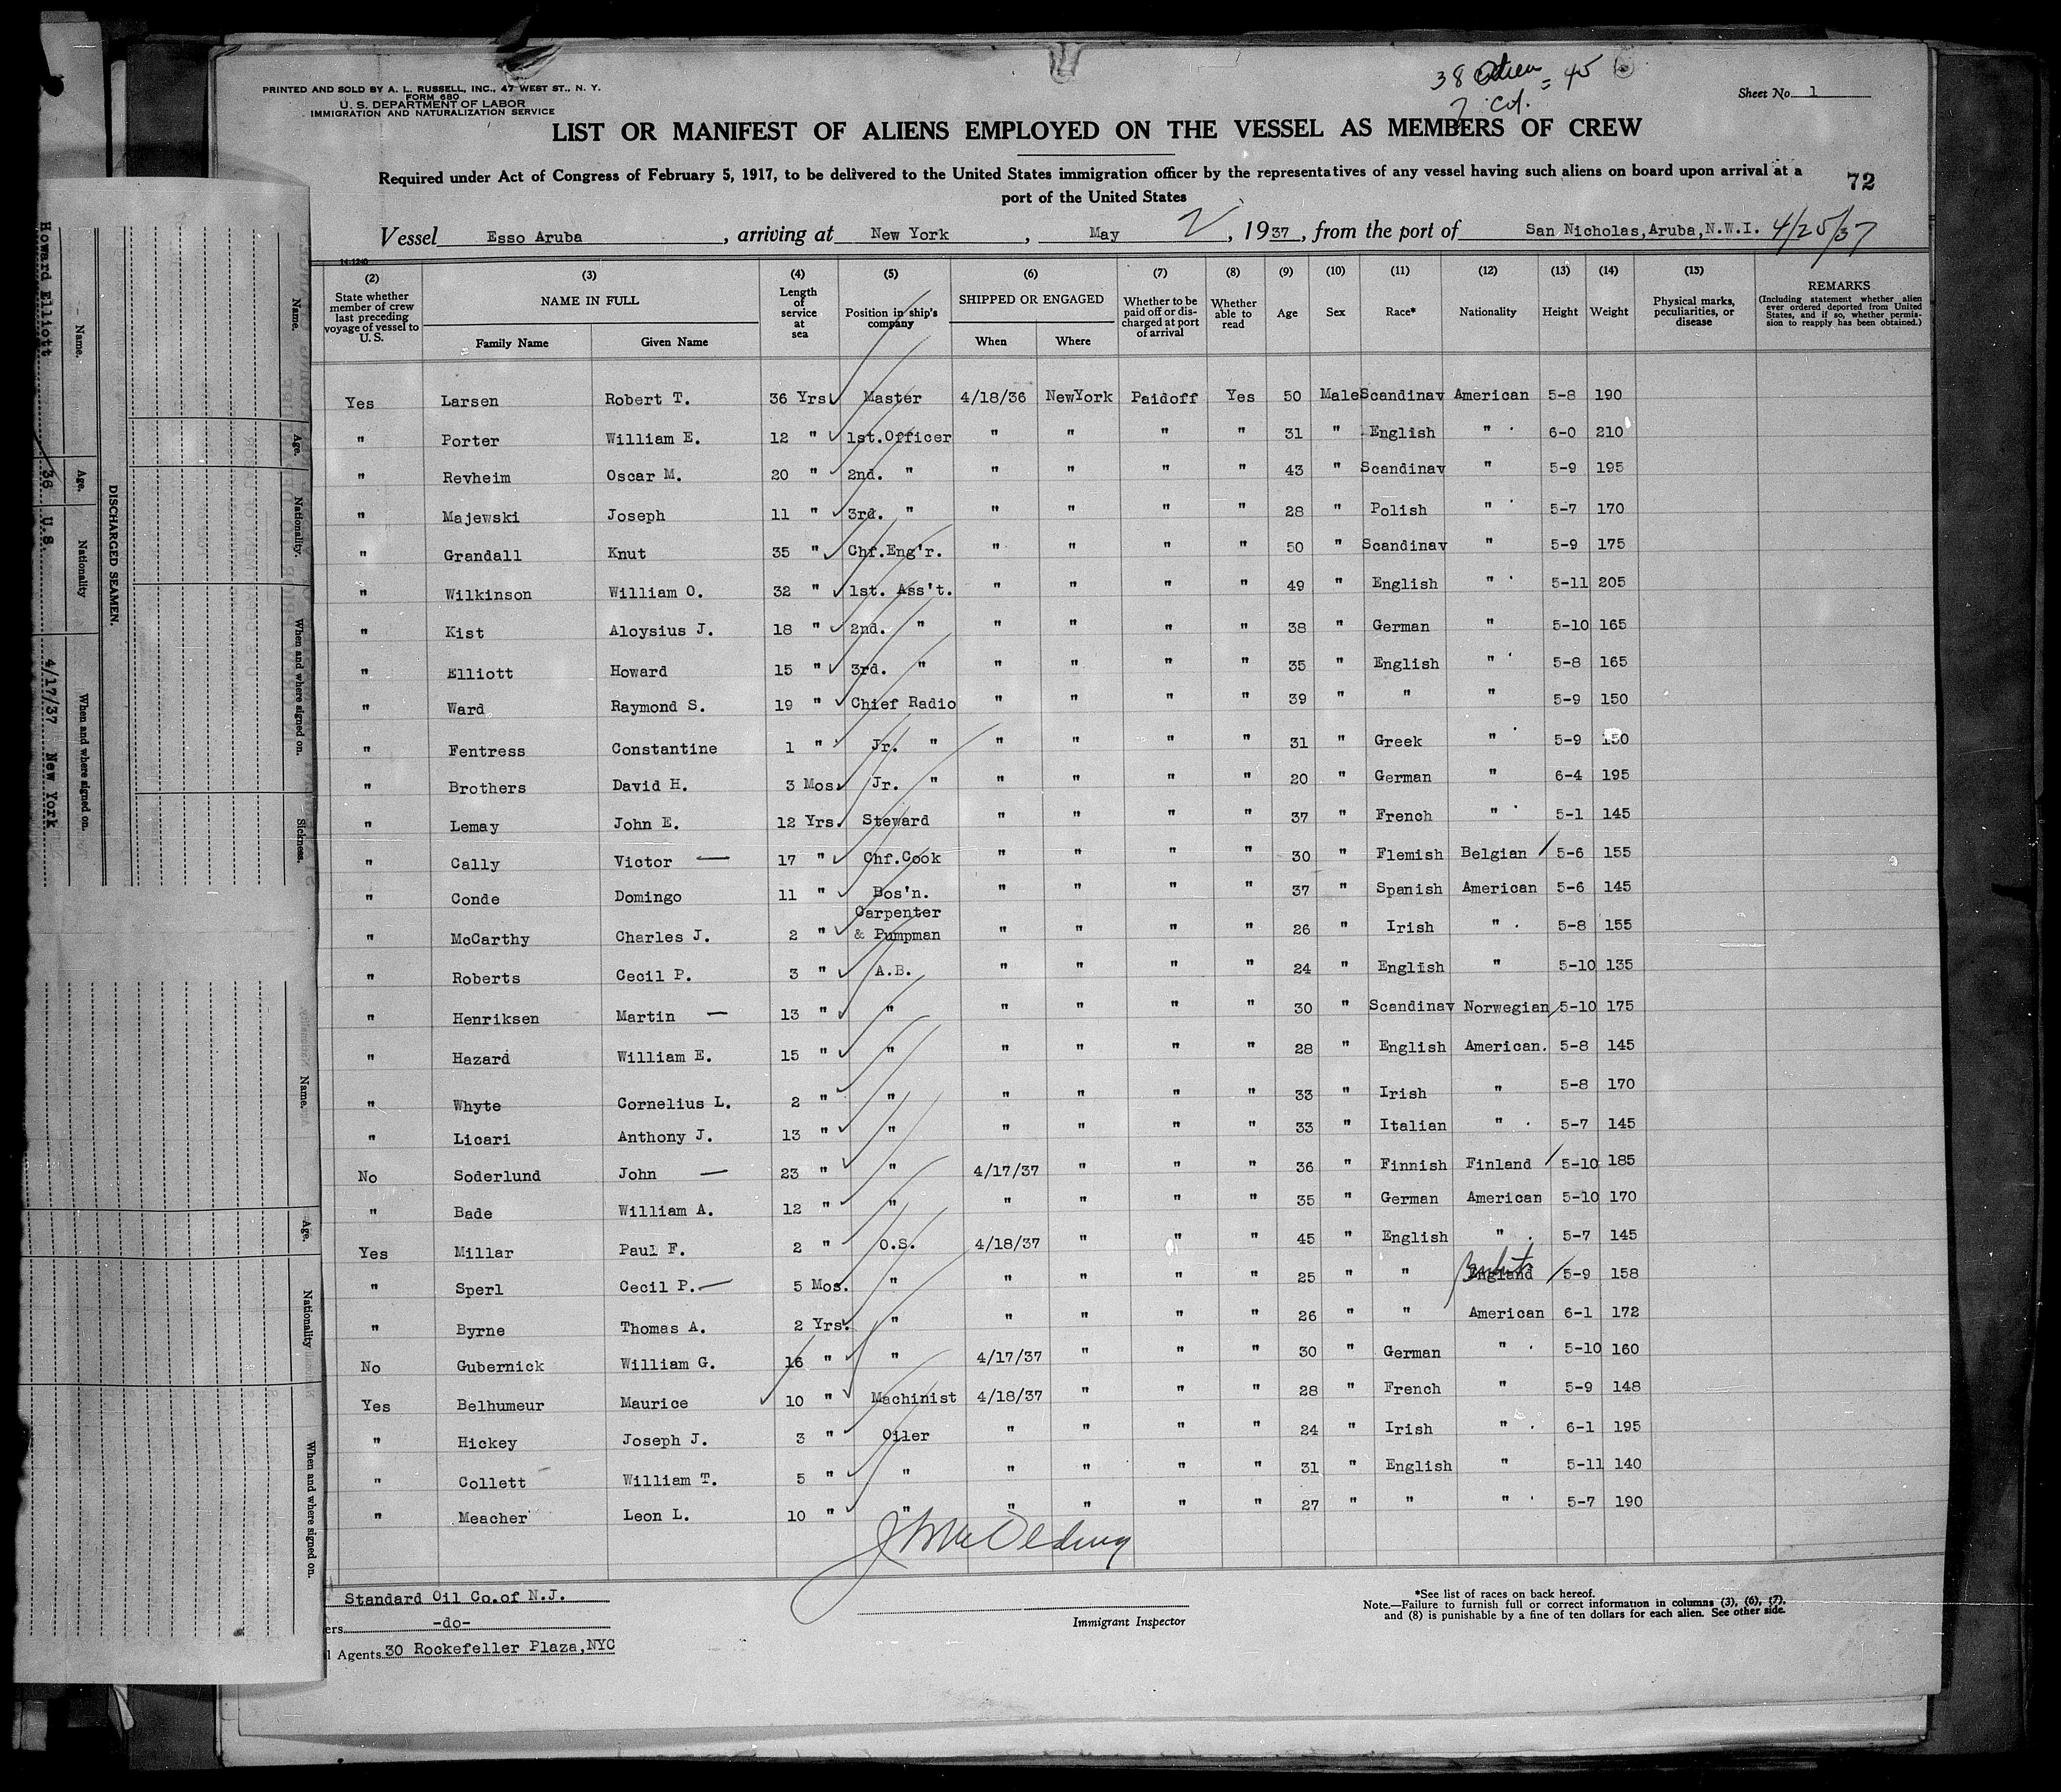 PRINTED AND SOLD BY A. L. RUSSELL, INC., 47 WEST ST., N. Y.
FORM 680
U. S. DEPARTMENT OF LABOR
IMMIGRATION AND NATURALIZATION SERVICE
38 = 45
Sheet No. 1
LIST OR MANIFEST OF ALIENS EMPLOYED ON THE VESSEL AS MEMBERS OF CREW
Required under Act of Congress of February 5, 1917, to be delivered to the United States immigration officer by the representatives of any vessel having such aliens on board upon arrival at a
port of the United States
72
Vessel Esso Aruba, arriving at New York, May 2, 1937, from the port of San Nicholas,Aruba,N.W.I. 4/25/37
(2) State whether member of crew last preceding voyage of vessel to U. S.
(3) NAME IN FULL Family Name Given Name
(4) Length of service at sea
(5) Position in ship's company
(6) SHIPPED OR ENGAGED When Where
(7) Whether to be paid off or discharged at port of arrival
(8) Whether able to read
(9) Age
(10) Sex
(11) Race*
(12) Nationality
(13) Height
(14) Weight
(15) Physical marks, peculiarities, or disease
REMARKS (Including statement whether alien ever ordered deported from United States, and if so, whether permission to reapply has been obtained.)
Yes Larsen Robert T. 36 Yrs Master 4/18/36 NewYork Paidoff Yes 50 Male Scandinav American 5-8 190
" Porter William E. 12 " 1st.Officer " " " " 31 " English " 6-0 210
" Revheim Oscar M. 20 " 2nd. " " " " " 43 " Scandinav " 5-9 195
" Majewski Joseph 11 " 3rd. " " " " " 28 " Polish " 5-7 170
" Grandall Knut 35 " Chf.Eng'r. " " " " 50 " Scandinav " 5-9 175
" Wilkinson William O. 32 " 1st. Ass't. " " " " 49 " English " 5-11 205
" Kist Aloysius J. 18 " 2nd. " " " " " 38 " German " 5-10 165
" Elliott Howard 15 " 3rd. " " " " " 35 " English " 5-8 165
" Ward Raymond S. 19 " Chief Radio " " " " 39 " " " 5-9 150
" Fentress Constantine 1 " Jr. " " " " " 31 " Greek " 5-9 150
" Brothers David H. 3 Mos. Jr. " " " " " 20 " German " 6-4 195
" Lemay John E. 12 Yrs. Steward " " " " 37 " French " 5-1 145
" Cally Victor — 17 " Chf.Cook " " " " 30 " Flemish Belgian 5-6 155
" Conde Domingo 11 " Bos'n. " " " " 37 " Spanish American 5-6 145
" McCarthy Charles J. 2 " Carpenter & Pumpman " " " " 26 " Irish " 5-8 155
" Roberts Cecil P. 3 " A.B. " " " " 24 " English " 5-10 135
" Henriksen Martin — 13 " " " " " " 30 " Scandinav Norwegian 5-10 175
" Hazard William E. 15 " " " " " " 28 " English American. 5-8 145
" Whyte Cornelius L. 2 " " " " " " 33 " Irish " 5-8 170
" Licari Anthony J. 13 " " " " " " 33 " Italian " 5-7 145
No Soderlund John — 23 " " 4/17/37 " " " 36 " Finnish Finland 5-10 185
" Bade William A. 12 " " " " " " 35 " German American 5-10 170
Yes Millar Paul F. 2 " O.S. 4/18/37 " " " 45 " English " 5-7 145
" Sperl Cecil P. — 5 Mos. " " " " " 25 " " England 5-9 158
" Byrne Thomas A. 2 Yrs. " " " " " 26 " " American 6-1 172
No Gubernick William G. 16 " " 4/17/37 " " " 30 " German " 5-10 160
Yes Belhumeur Maurice 10 " Machinist 4/18/37 " " " 28 " French " 5-9 148
" Hickey Joseph J. 3 " Oiler " " " " 24 " Irish " 6-1 195
" Collett William T. 5 " " " " " " 31 " English " 5-11 140
" Meacher Leon L. 10 " " " " " " 27 " " " 5-7 190
Standard Oil Co.of N.J.
ers -do-
l Agents 30 Rockefeller Plaza,NYC
Immigrant Inspector
*See list of races on back hereof.
Note.—Failure to furnish full or correct information in columns (3), (6), (7),
and (8) is punishable by a fine of ten dollars for each alien. See other side.
DISCHARGED SEAMEN.
Name. Age. Nationality When and where signed on.
Howard Elliott 36 U.S. 4/17/37 New York
Name. Age. Nationality. When and where signed on. Sickness.
Name. Age. Nationality When and where signed on.